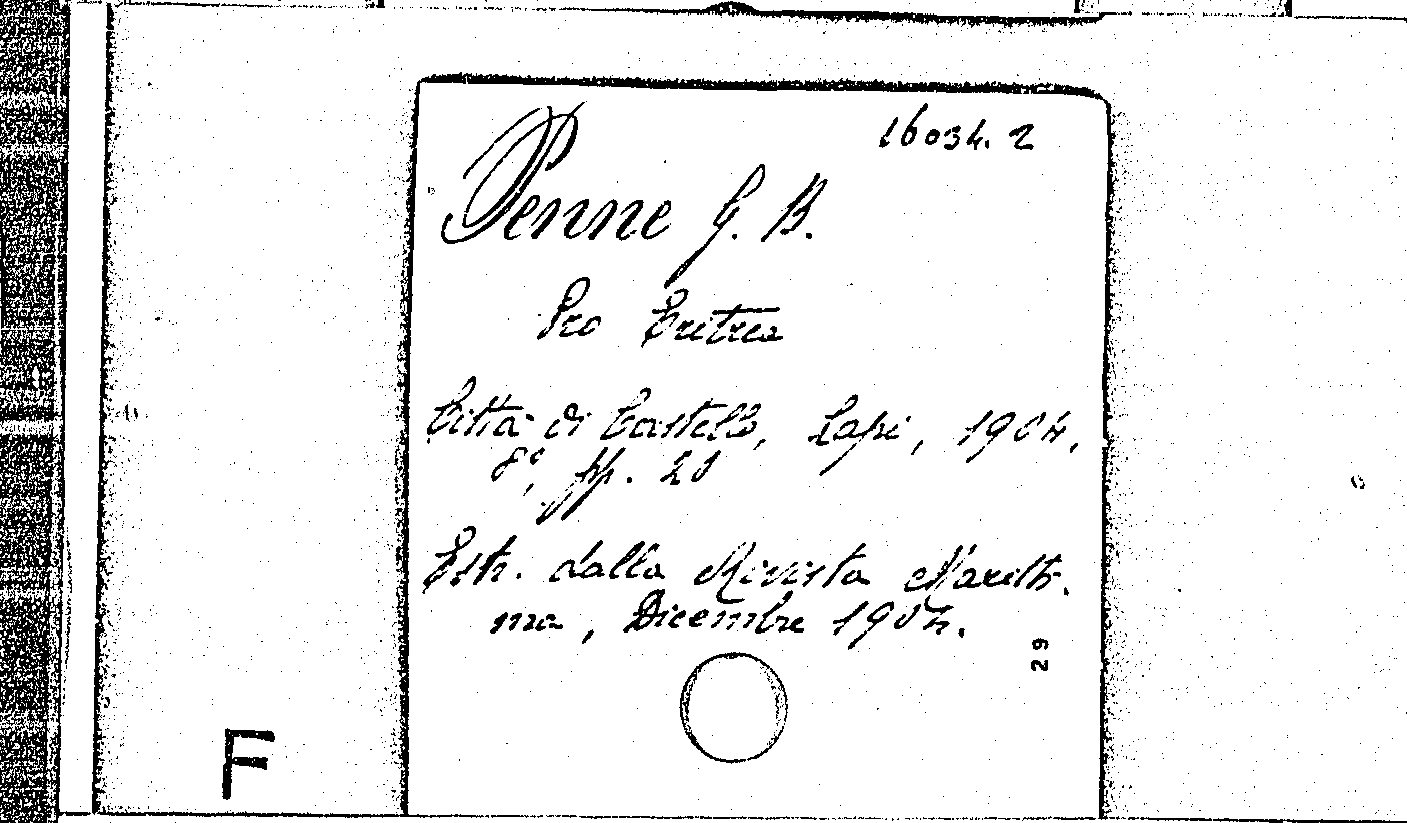 16034. 2
Penne G. B.
Pro Eritrea
Città di Castello, Lapi, 1904.
8°, pp. 20
Estr. dalla Rivista Maritti-
ma, Dicembre 1904.
29
F